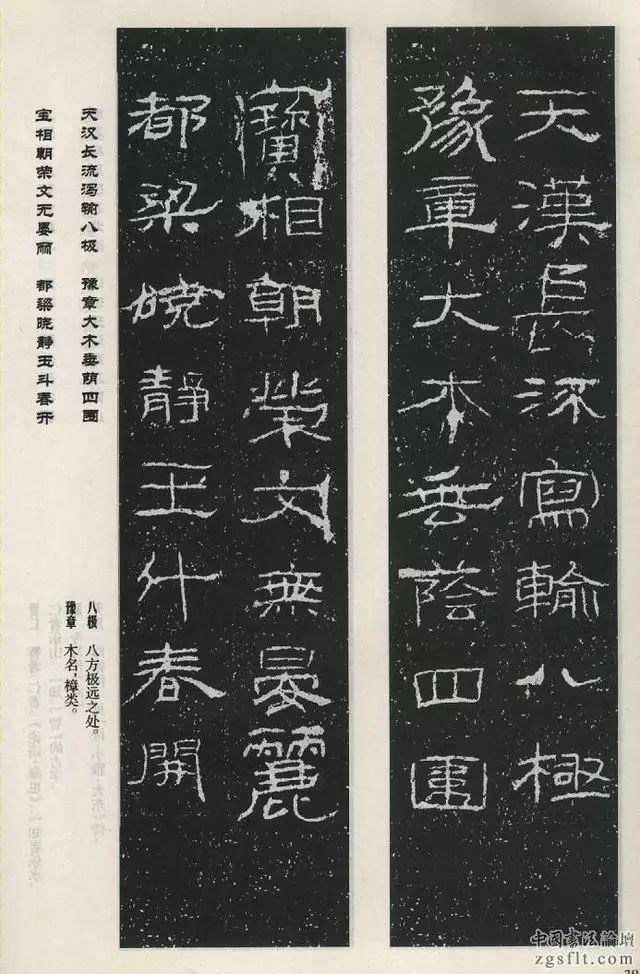 天漢長流寫輸八極
豫章大木垂蔭四圍
寶相朝榮文無晏麗
都梁曉靜玉斗春開
天汉长流泻输八极　豫章大木垂荫四围
宝相朝荣文无晏丽　都梁晓静玉斗春开
八极　八方极远之处。
豫章　木名,樟类。
中国书法论坛
zgsflt.com